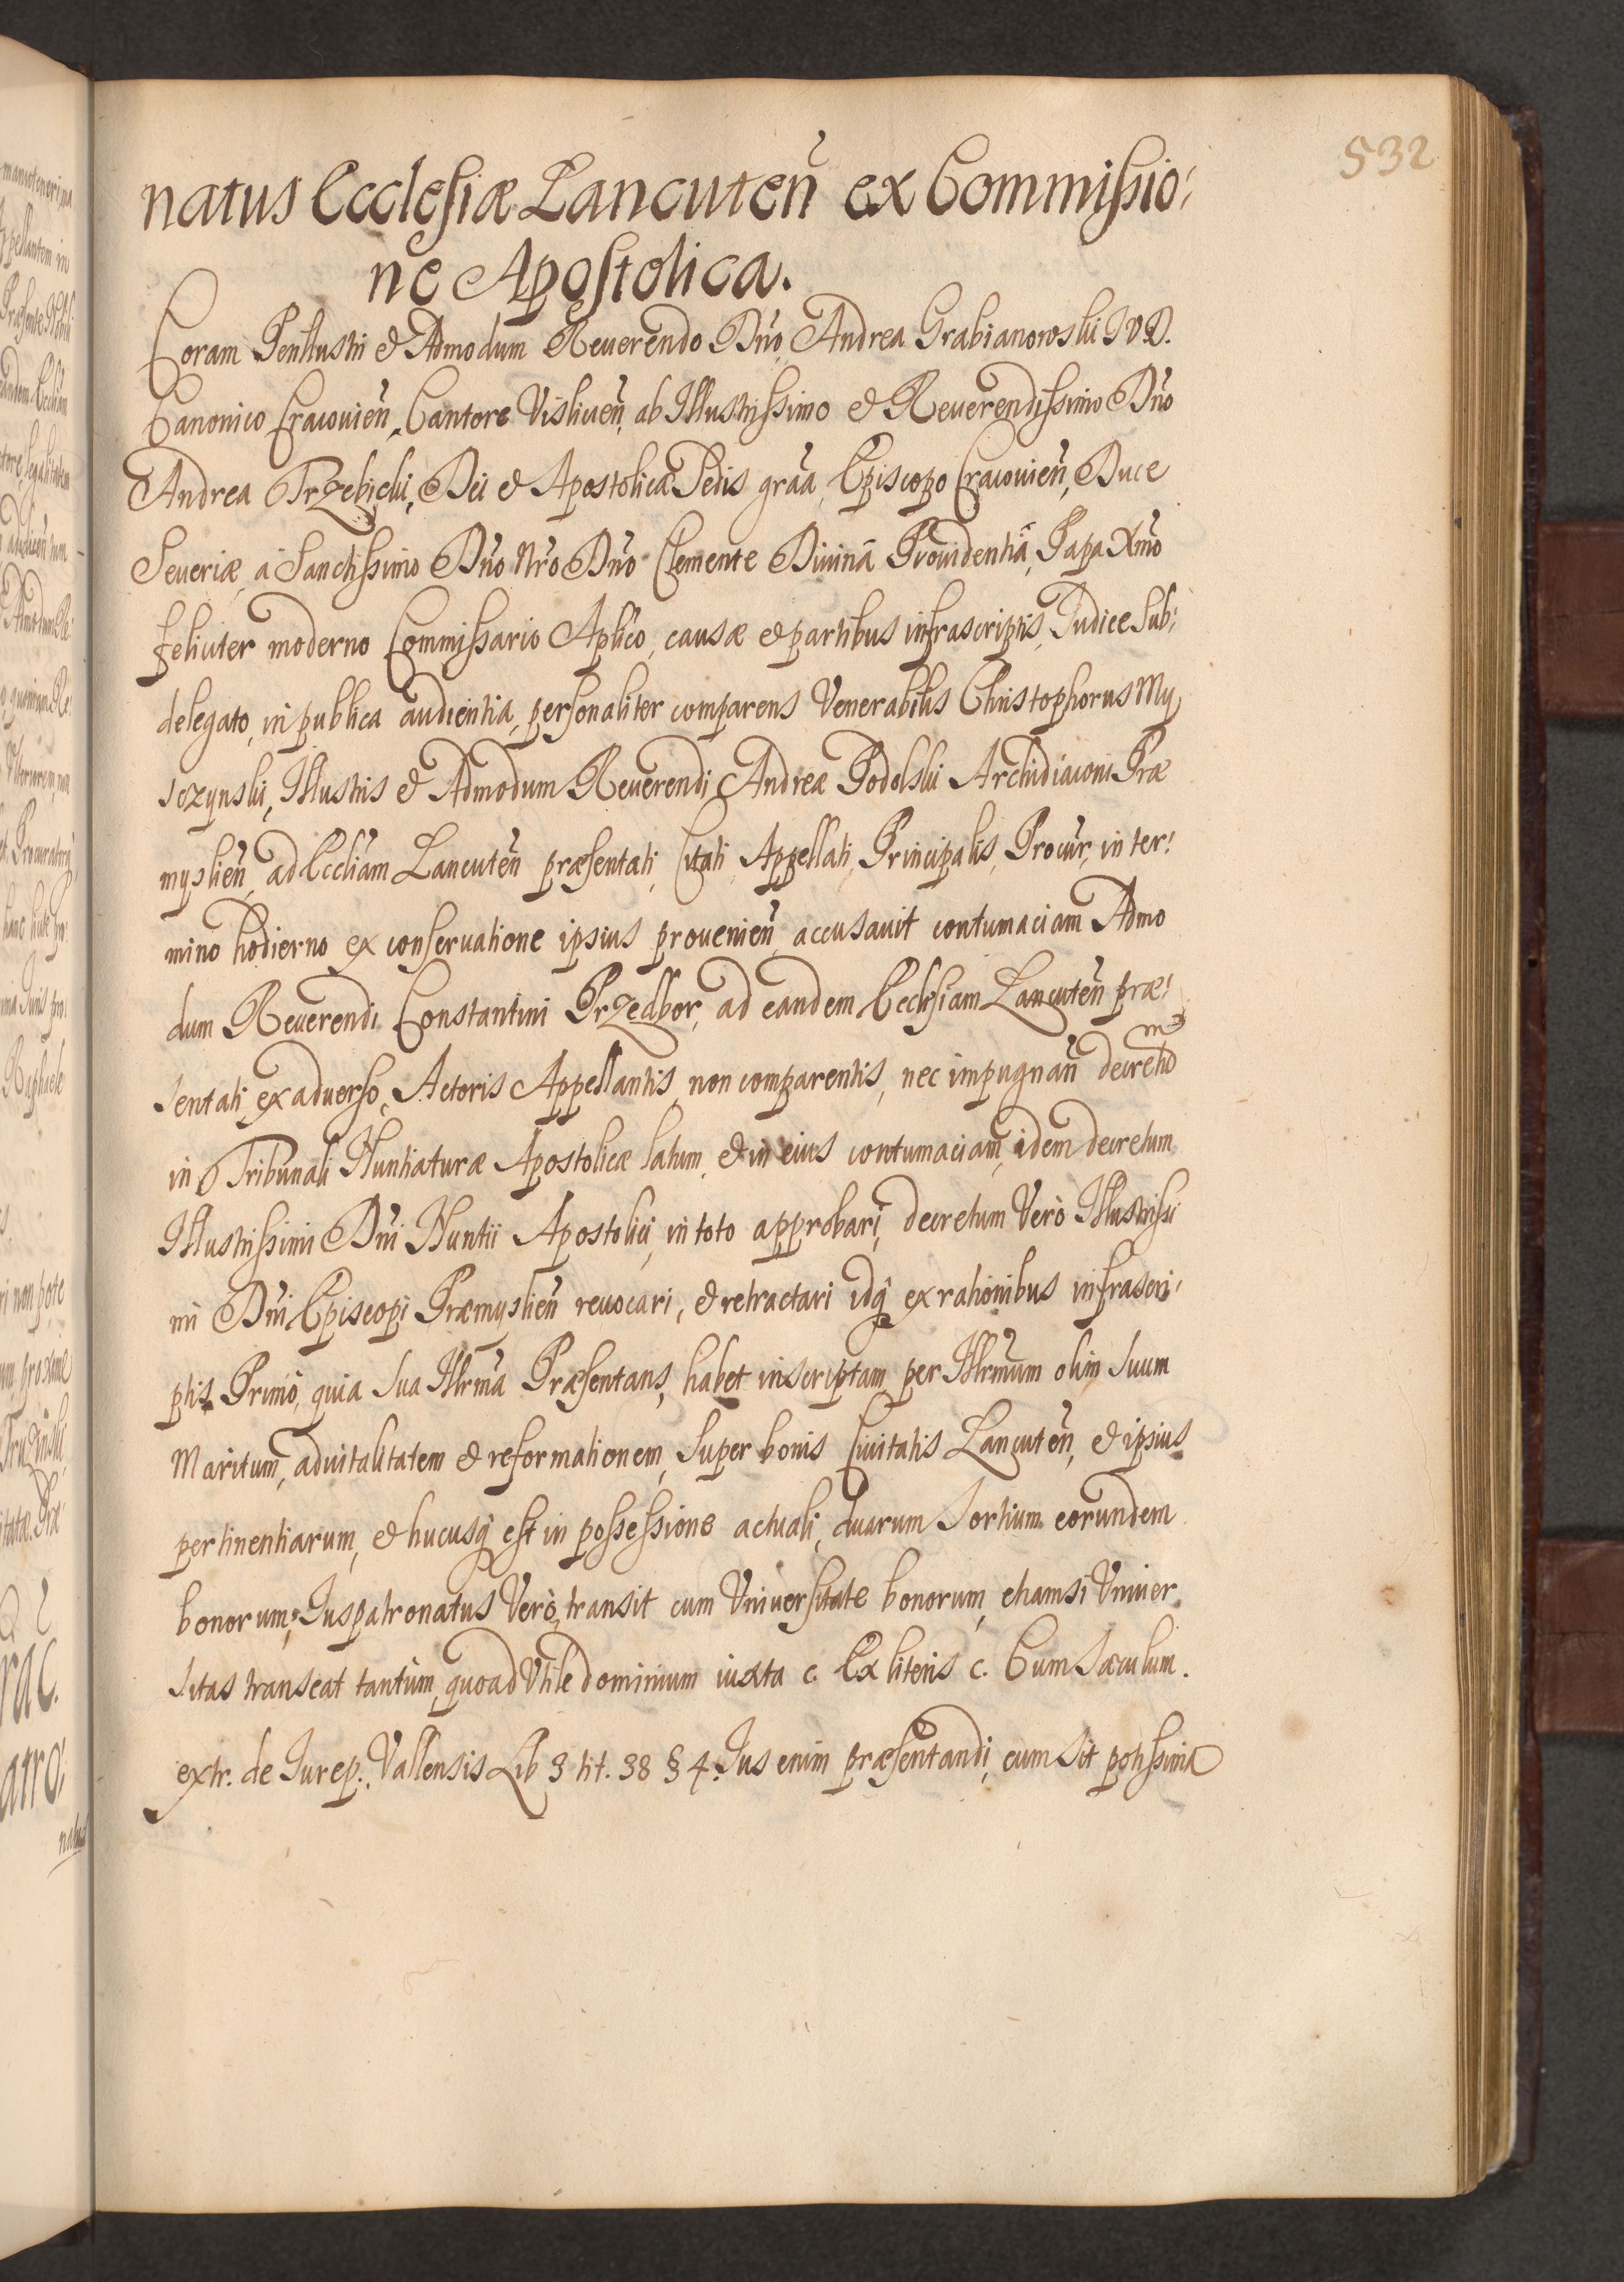 532
natus Ecclesiæ Lancuteñ ex Commissio:
ne Apostolica.
Coram Perillustri et Admodum Reuerendo Dño, Andrea Grabianowski IVD.
Canonico Cracouieñ, Cantore Visliceñ, ab Illustrissimo et Reuerendissimo Dño
Andrea Trzebicki, Dei et Apostolicæ Sedis grãa, Episcopo Cracouieñ, Duce
Seueriæ, à Sanctissimo Dño Nrõ Dño Clemente Diuinâ Prouidentiâ, Papa Xmõ
feliciter moderno Commissario Aplico, causæ et partibus infrascriptis, Iudice Sub:
delegato, in publica audientia, personaliter comparens Venerabilis Christophorus My
sczynski, Illustris et Admodum Reuerendi Andreæ Podolski Archidiaconi Præ
myslieñ, ad Eccliam Lancuteñ præsentati, Citati, Appellati, Principalis, Procur, in ter:
mino hodierno ex conseruatione ipsius prouenieñ, accusauit contumaciam Admo
dum Reuerendi Constantini Przedbor, ad eandem Ecclesiam Lancuteñ præ:
sentati, ex aduerso, Actoris Appellantis, non comparentis, nec impugnañ decretum
in Tribunali Nuntiaturæ Apostolicæ latum, et in eius contumaciam, idem decretum
Illustrissimi Dñi Nuntii Apostolici, in toto approbari, decretum Verò Illustrissi
mi Dñi Episcopi Præmyslieñ reuocari, et retractari idq ex rationibus infrascri:
ptis. Primò, quia Sua Illrmã Præsentans, habet inscriptam per Illrmũm olim Suum
Maritum, aduitalitatem et reformationem, Super bonis Ciuitatis Lancuteñ, et ipsius
pertinentiarum, et hucusq est in possessione actuali, duarum Sortium eorundem
bonorum; Iuspatronatus Verò, transit cum Vniuersitate bonorum, etiamsi Vniuer
sitas transeat tantùm, quoad Vtile dominium iuxta c. Ex literis c. Cum Sæculum.
extr. de Iurep: Vallensis Lib 3 tit. 38 § 4. Ius enim præsentandi, cum Sit potissima